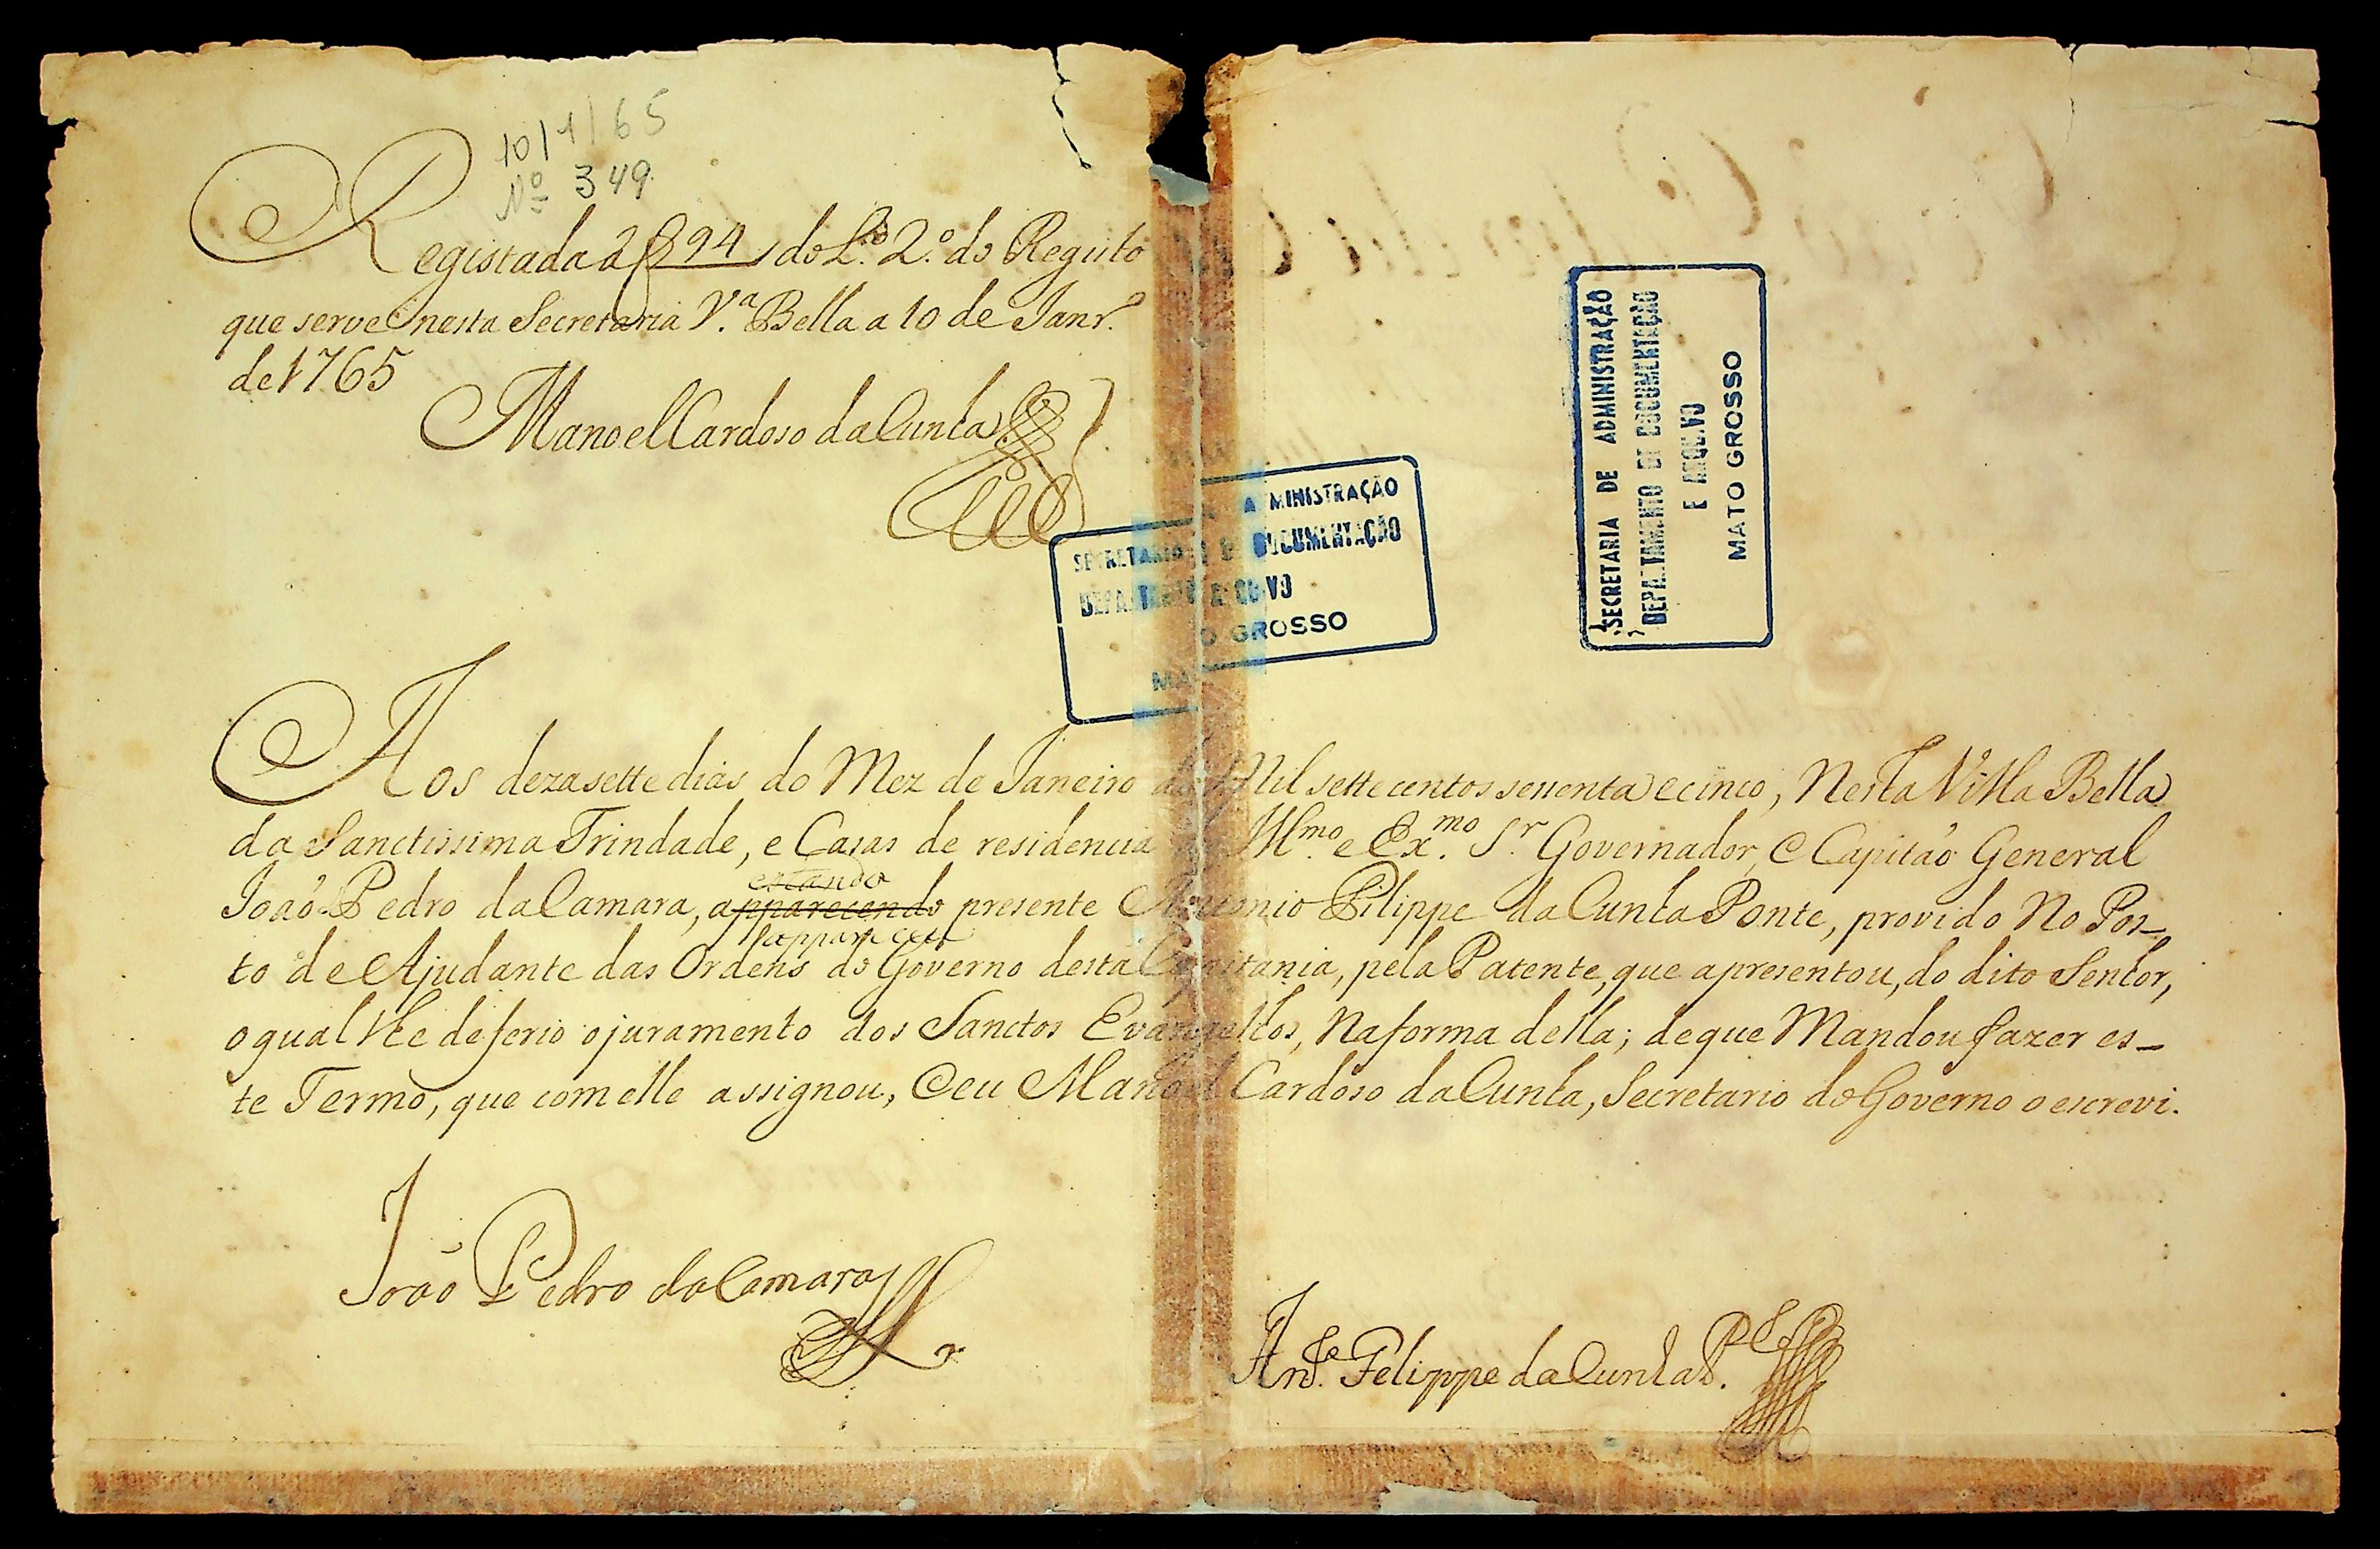 10/1/65
Nº 349
Registada a f 94 do L.º 2.º do Registo
que serve nesta Secretaria V.ª Bella a 10 de Janr.º
de 1765
Manoel Cardoso da Cunha
SECRETARIA DE ADMINISTRAÇÃO
DEPARTAMENTO DE DOCUMENTAÇÃO
E ARQUIVO
MATO GROSSO
MINISTRAÇÃO
DOCUMENTAÇÃO
GROSSO
Aos dezasette dias do Mez de Janeiro de Mil settecentos sessenta e cinco, Nesta Villa Bella
da Sanctissima Trindade, e Casas de residencia Ill.mo e Ex.mo S.r Governador, e Capitaõ General
estando
Joaõ Pedro da Camara, apparecendo presente Antonio Filippe da Cunha Ponte, provido No Pos-
appareceu
to de Ajudante das Ordens do Governo desta Capitania, pela Patente, que apresentou, do dito Senhor,
o qual lhe deferio o juramento dos Sanctos Evangelhos, Na forma della; de que Mandou fazer es-
te Termo, que com elle assignou, E eu Manoel Cardoso da Cunha, Secretario do Governo o escrevi.
João Pedro da Camara
Ant.º Felippe da Cunha P.